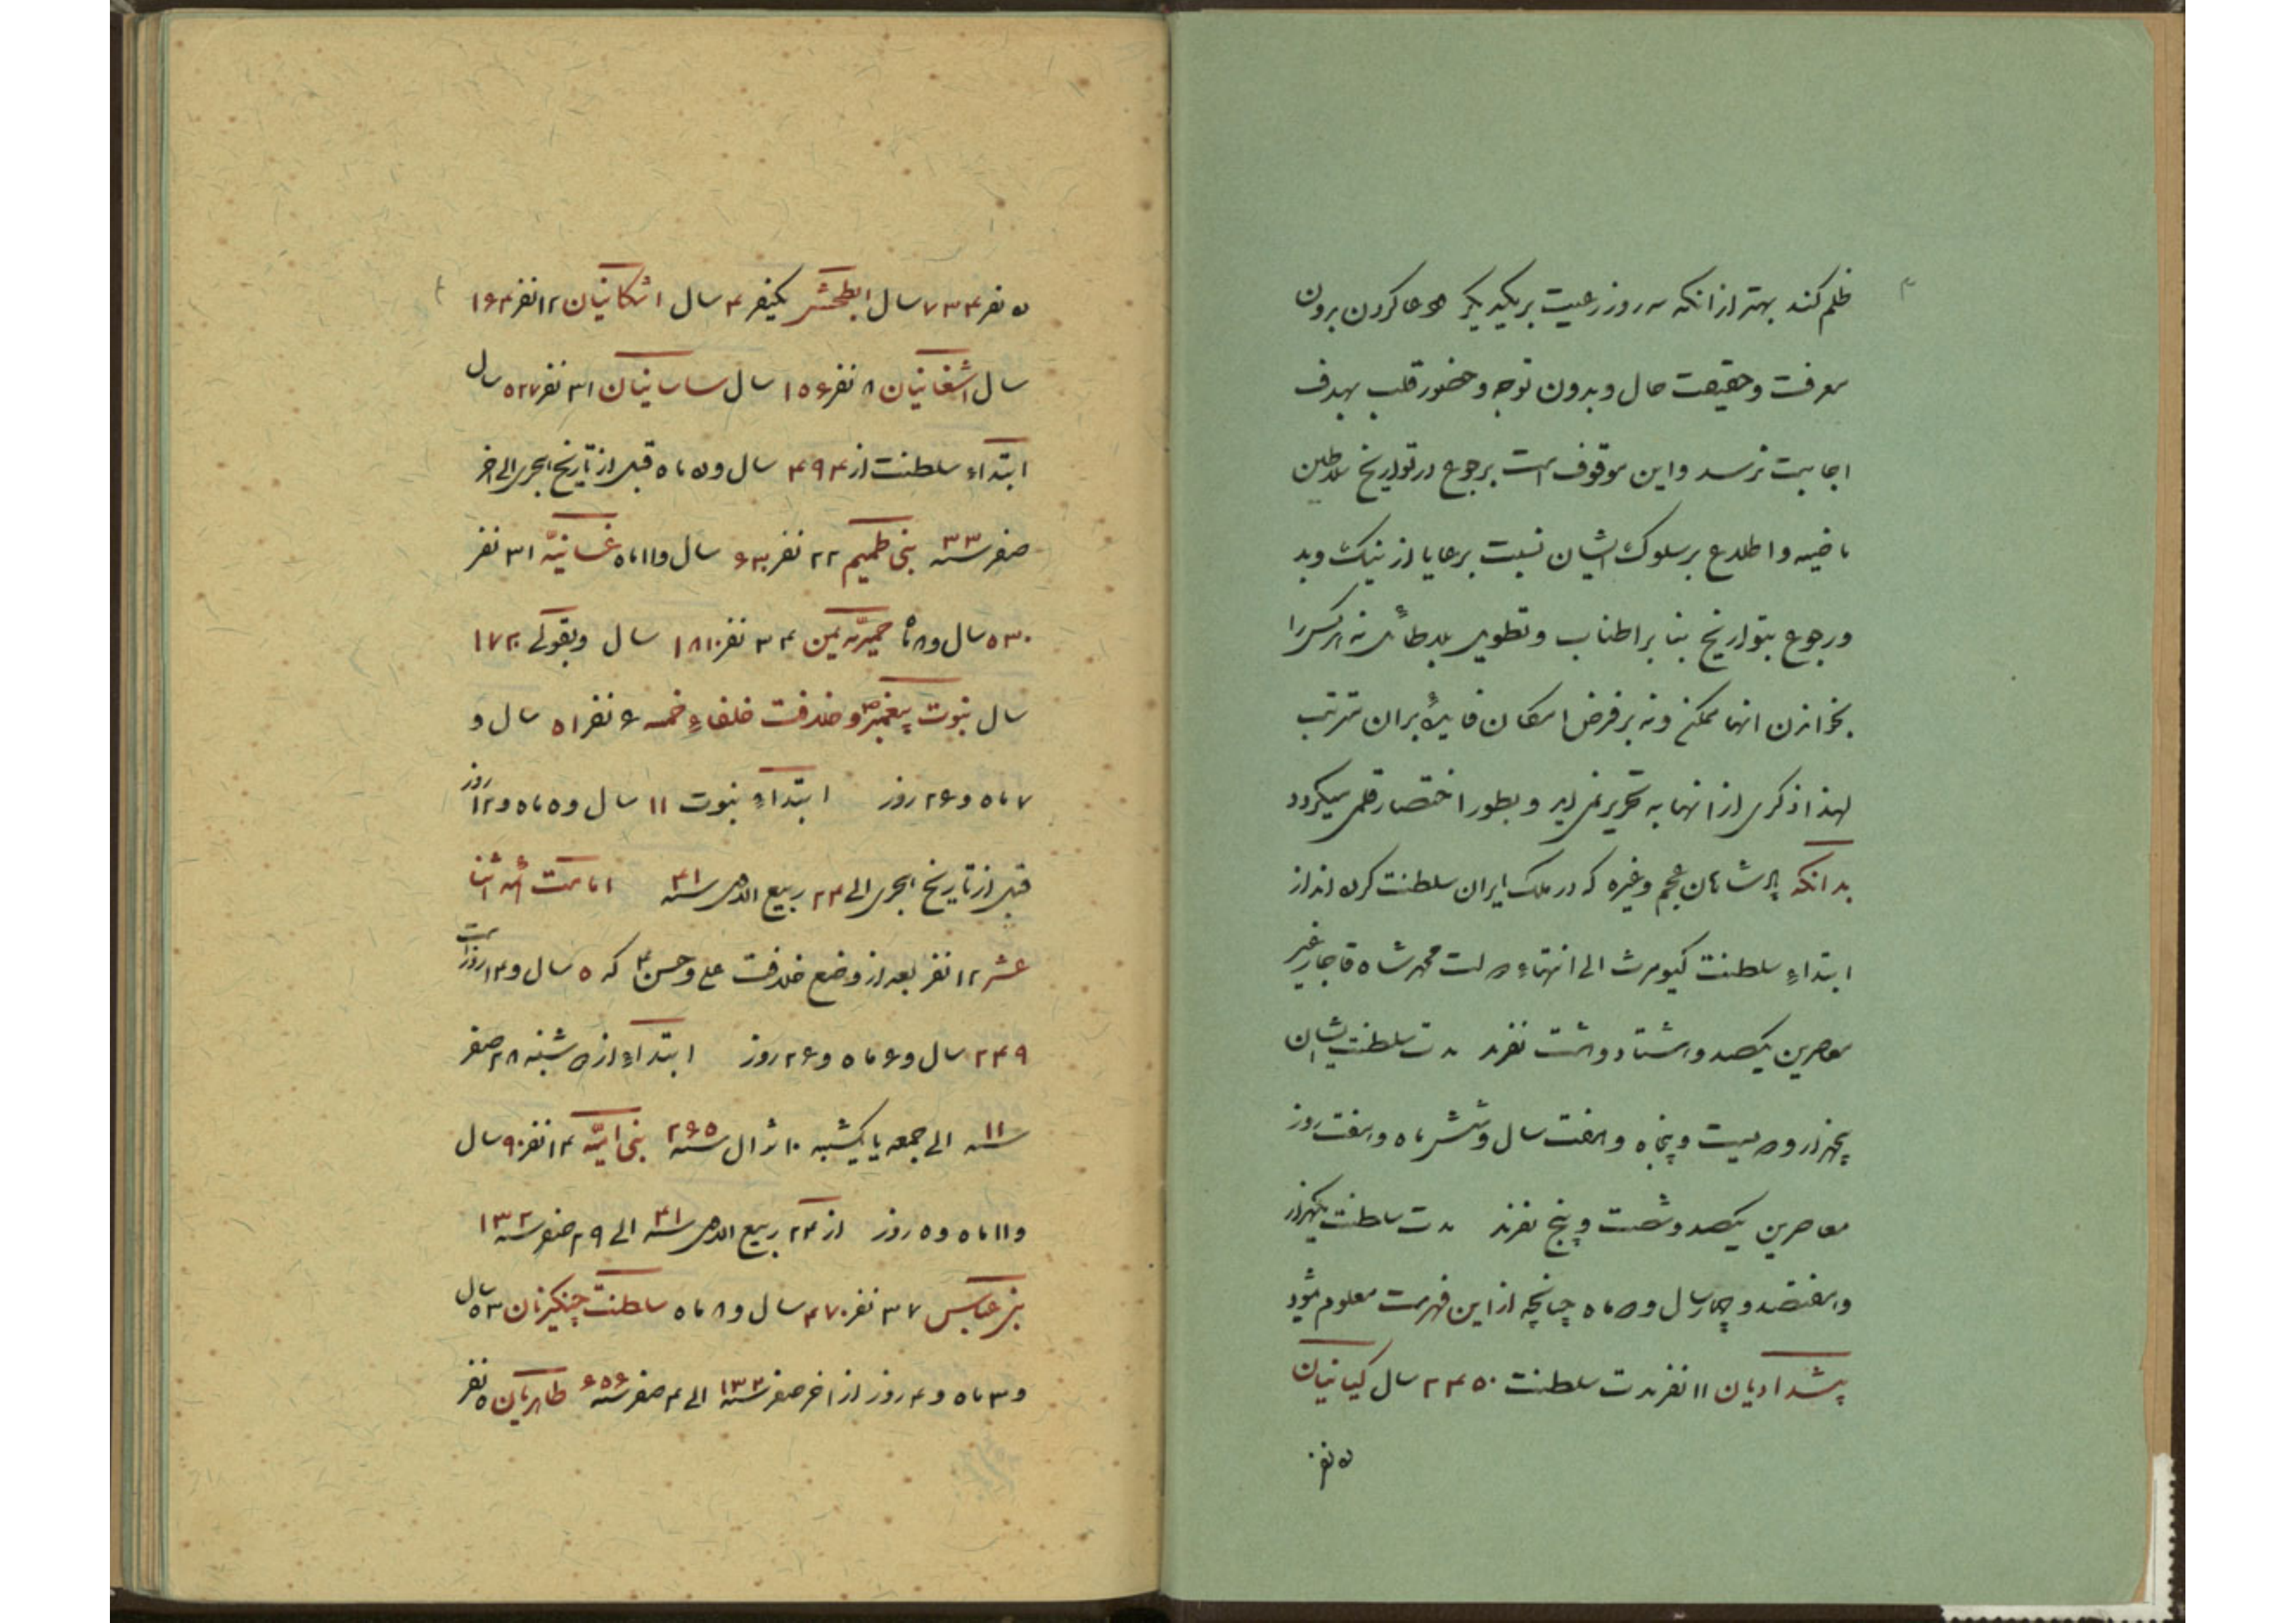 ظلم کند بهتر از انکه سه روز رعیت بر یکدیگر دعا کردن بدون
معرفت و حقیقت حال و بدون توجه و حضور قلب بهدف
اجابت نرسد و این موقوف است برجوع در تواریخ سلاطین
ماضیه و اطلاع بر سلوک ایشان نسبت برعایا از نیک و بد
و رجوع بتواریخ بنا بر اطناب و تطویل بلاطائل نه هر کس را
بخواندن انها ممکن و نه بر فرض امکان فایدهٔ بران مترتب
لهذا ذکری از انها به تحریر نمی اید و بطور اختصار قلمی میگردد
بدانکه پادشاهان عجم و غیره که در ملک ایران سلطنت کرده اند از
ابتداءِ سلطنت کیومرث الی انتهاءِ دولت محمد شاه قاجار غیر
معاصرین یکصد و هشتاد و هشت نفرند مدت سلطنت ایشان
پنجهزار و دویست و پنجاه و هفت سال و شش ماه و هفت روز
معاصرین یکصد و شصت و پنج نفرند مدت سلطنت یکهزار
و هفتصد و چهار سال و ده ماه چنانچه از این فهرست معلوم شود
پیشدادیان ۱۱ نفر مدت سلطنت ۲۴۵۰ سال کیانیان
۵ نفر
۵ نفر ۷۳۴ سال ابطحش یکنفر ۴ سال اشکانیان ۱۲ نفر ۱۶۴
سال اشغانیان ۸ نفر ۱۵۶ سال ساسانیان ۳۱ نفر ۵۲۷ سال
ابتداءِ سلطنت از ۴۹۴ سال و ۵ ماه قبل از تاریخ هجری الی اخر
صفر سنه ۳۳ بنی طمیم ۲۲ نفر ۶۳۰ سال و ۱۱ ماه غسانیّه ۳۱ نفر
۵۳۰ سال و ۸ ماه حمیریّه یمن ۳۴ نفر ۱۸۱۰ سال و بقولی ۱۷۲۰
سال نبوت پیغمبر ص و خلافت خلفاءِ خمسه ۶ نفر ۵۱ سال و
۷ ماه و ۲۶ روز ابتداءِ نبوت ۱۱ سال و ۵ ماه و ۱۲ روز
قبل از تاریخ هجری الی ۲۴ ربیع الاول سنه ۴۱ امامت ائمه اثنا
عشر ۱۲ نفر بعد از وضع خلافت علی و حسن ع که ۵ سال و ۱۴ روز است
۲۴۹ سال و ۶ ماه و ۲۶ روز ابتداءِ از دوشنبه ۲۸ صفر
سنه ۱۱ الی جمعه یا یکشنبه ۱۰ شوال سنه ۲۶۵ بنی امیّه ۱۴ نفر ۹۰ سال
و ۱۱ ماه و ۵ روز از ۲۴ ربیع الاول سنه ۴۱ الی ۲۹ صفر سنه ۱۳۲
بنی عباس ۳۷ نفر ۴۷۰ سال و ۸ ماه سلطنت چنگیزیان ۵۳ سال
و ۳ ماه و ۴ روز از اخر صفر سنه ۱۳۲ الی ۴ صفر سنه ۶۵۶ طاهریان ۵ نفر